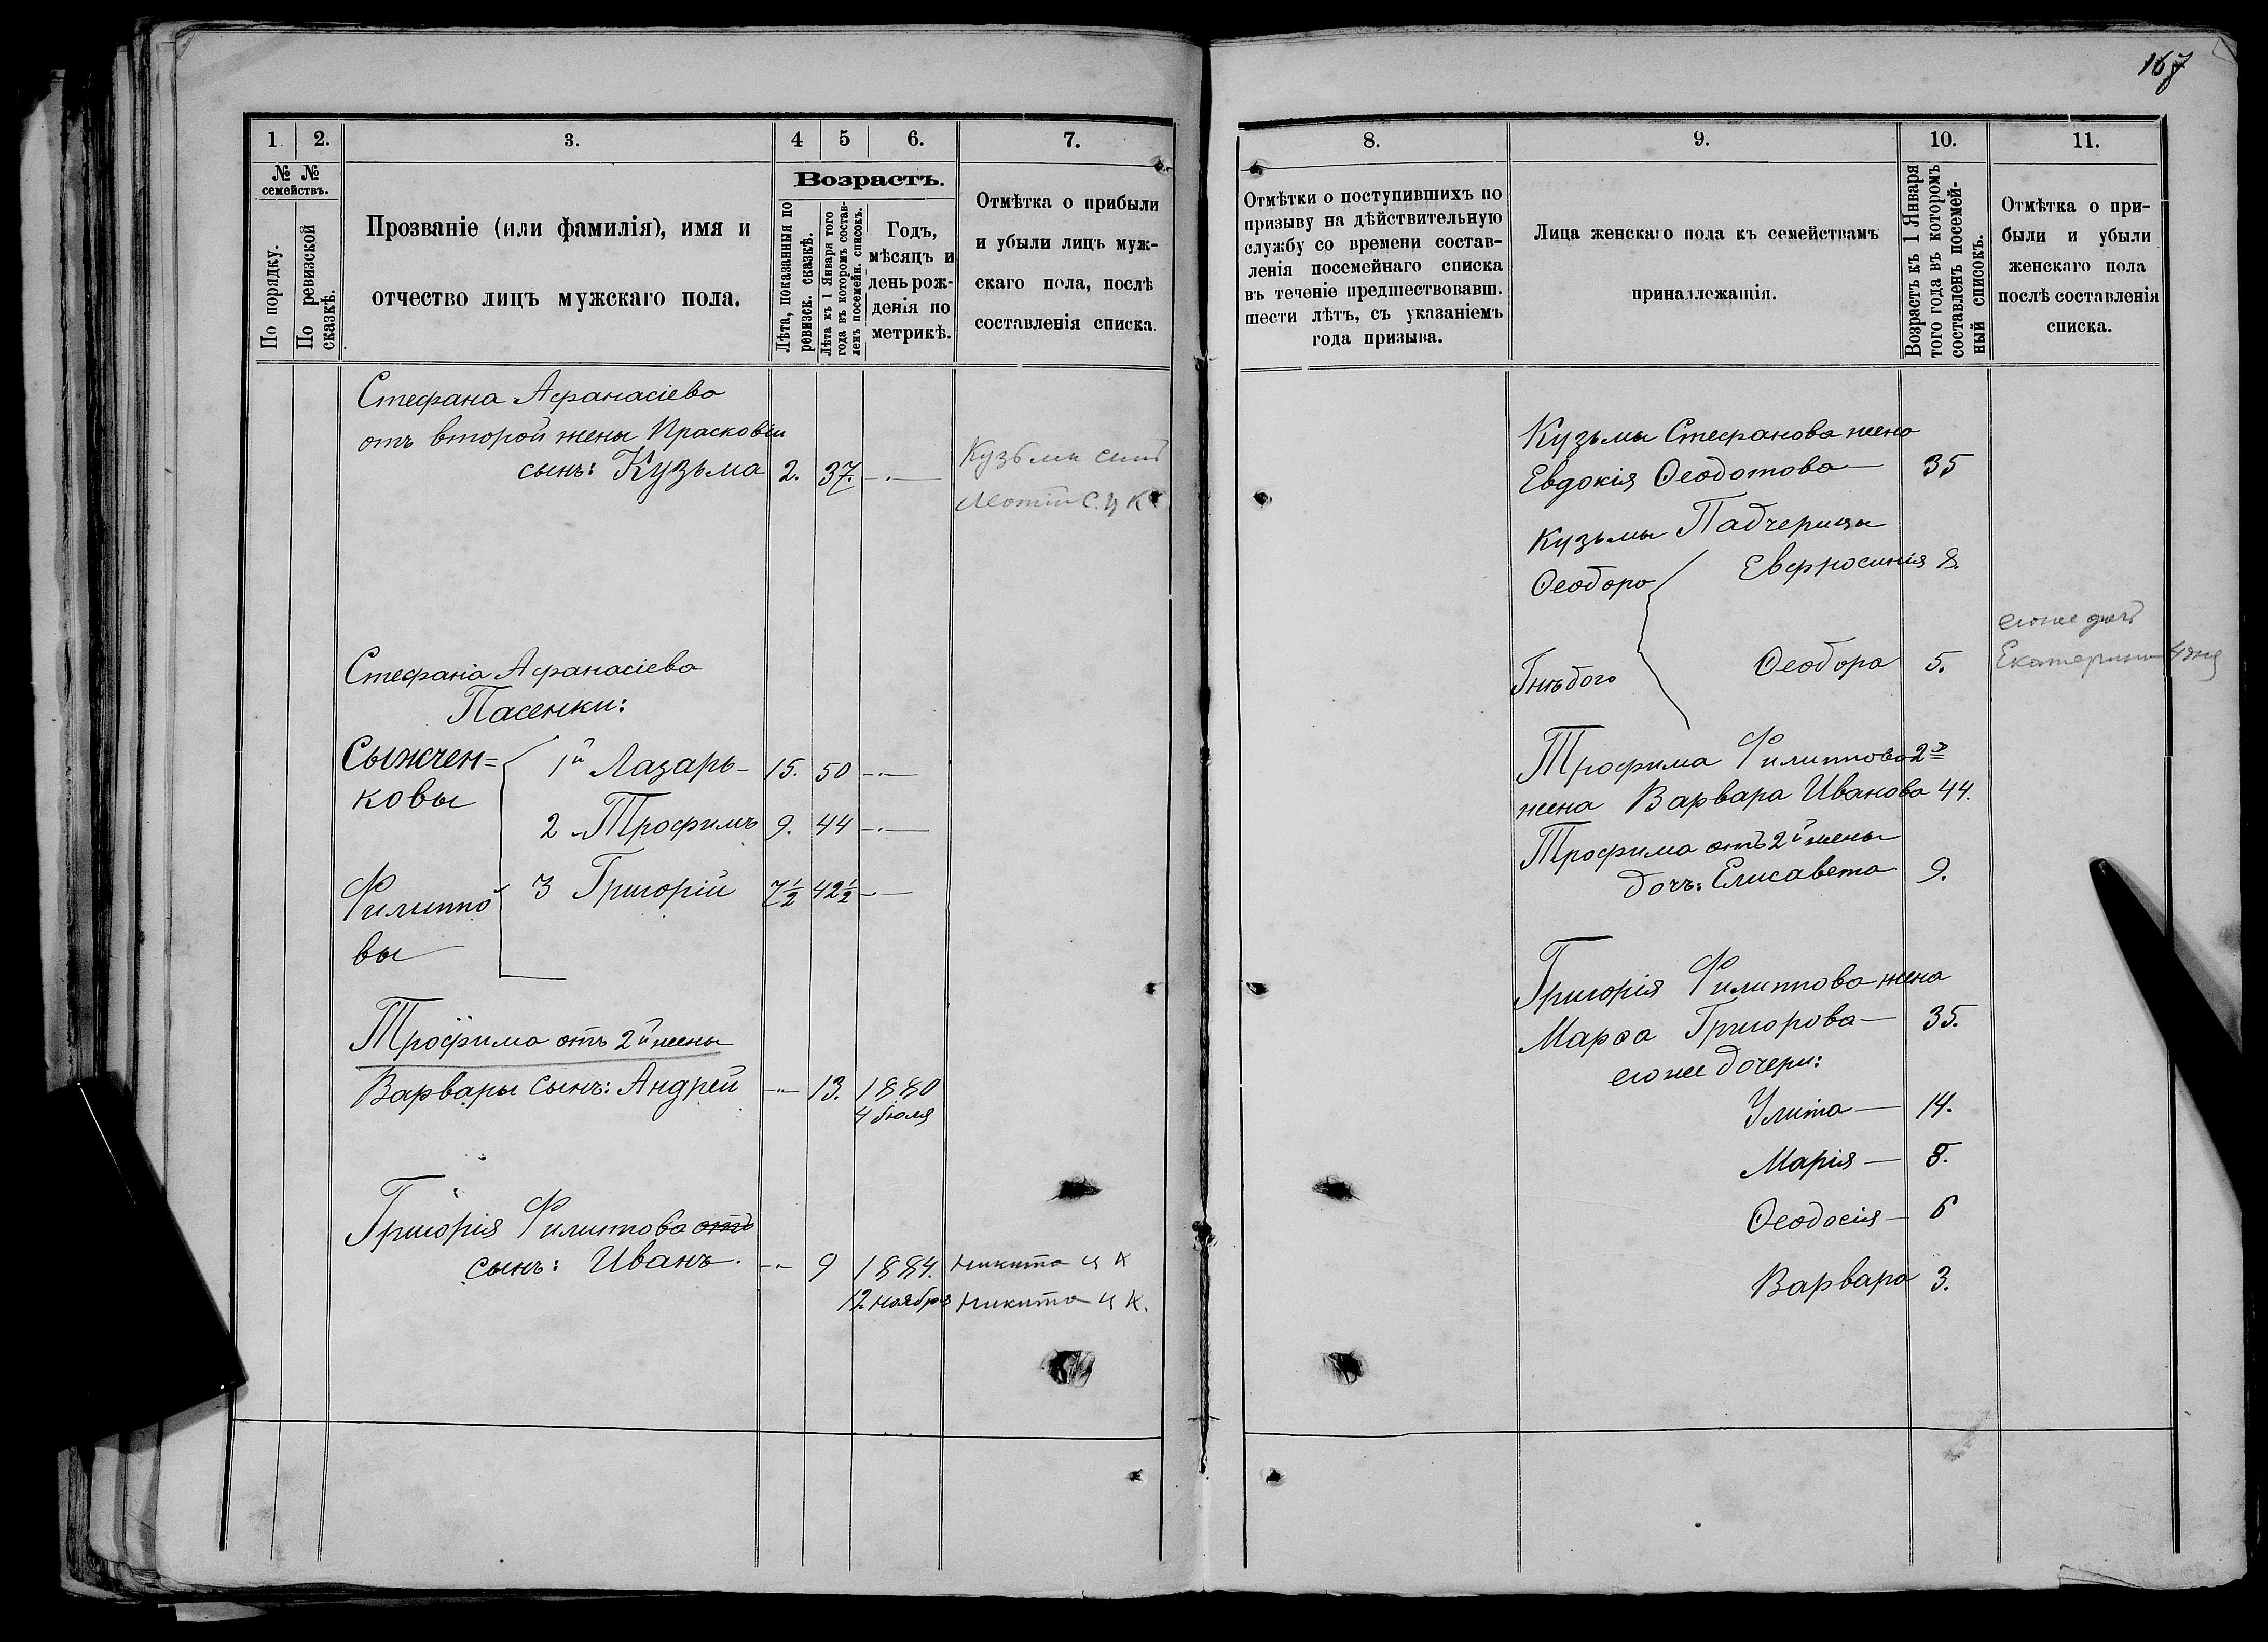 167
1. 2. 3. 4 5 6. 7.
№ № семействъ.
По порядку.
По ревизской сказкѣ.
Прозваніе (или фамилія), имя и
отчество лицъ мужскаго пола.
Возрастъ.
Лѣта, показанныя по ревизск. сказкѣ.
Лѣта къ 1 Января того года въ которомъ составленъ посемейн. списокъ.
Годъ,
мѣсяцъ и
день рож-
денія по
метрикѣ.
Отмѣтка о прибыли
и убыли лицъ муж-
скаго пола, послѣ
составленія списка.
Стефана Афанасіева
отъ второй жены Прасковіи
сынъ: Кузьма 2. 37.
Кузьмы сынъ
Стефана Афанасіева
Пасенки:
Сыжчен=
ковы
1й Лазарь 15. 50
2 Трофимъ 9. 44
Филиппо
вы
3 Григорій 7½ 42½
Трофима отъ 2й жены
Варвары сынъ: Андрей 13. 1880
4 Іюля
Григорія Филиппова отъ
сынъ: Иванъ. 9 1884. Никита ц К
12 ноября Никита ц К.
8. 9. 10. 11.
Отмѣтки о поступившихъ по
призыву на дѣйствительную
службу со времени состав-
ленія посемейнаго списка
въ теченіе предшествовавш.
шести лѣтъ, съ указаніемъ
года призыва.
Лица женскаго пола къ семействамъ
приналлежащія.
Возрастъ къ 1 Января
того года въ которомъ
составленъ посемей-
ный списокъ.
Отмѣтка о при-
были и убыли
женскаго пола
послѣ составленія
списка.
Кузьмы Стефанова жена
Евдокія Ѳеодотова 35
Кузьмы Падчерицы
Ѳеодора Евфросинія 8.
Гнѣдого Ѳеодора 5.
егоже дочь
Екатерина
Трофима Филиппова 2я
жена Варвара Иванова 44.
Трофима отъ 2й жены
дочь: Елисавета 9.
Григорія Филиппова жена
Марѳа Григорова 35.
егоже дочери:
Улита 14.
Марія 8.
Ѳеодосія 6
Варвара 3.